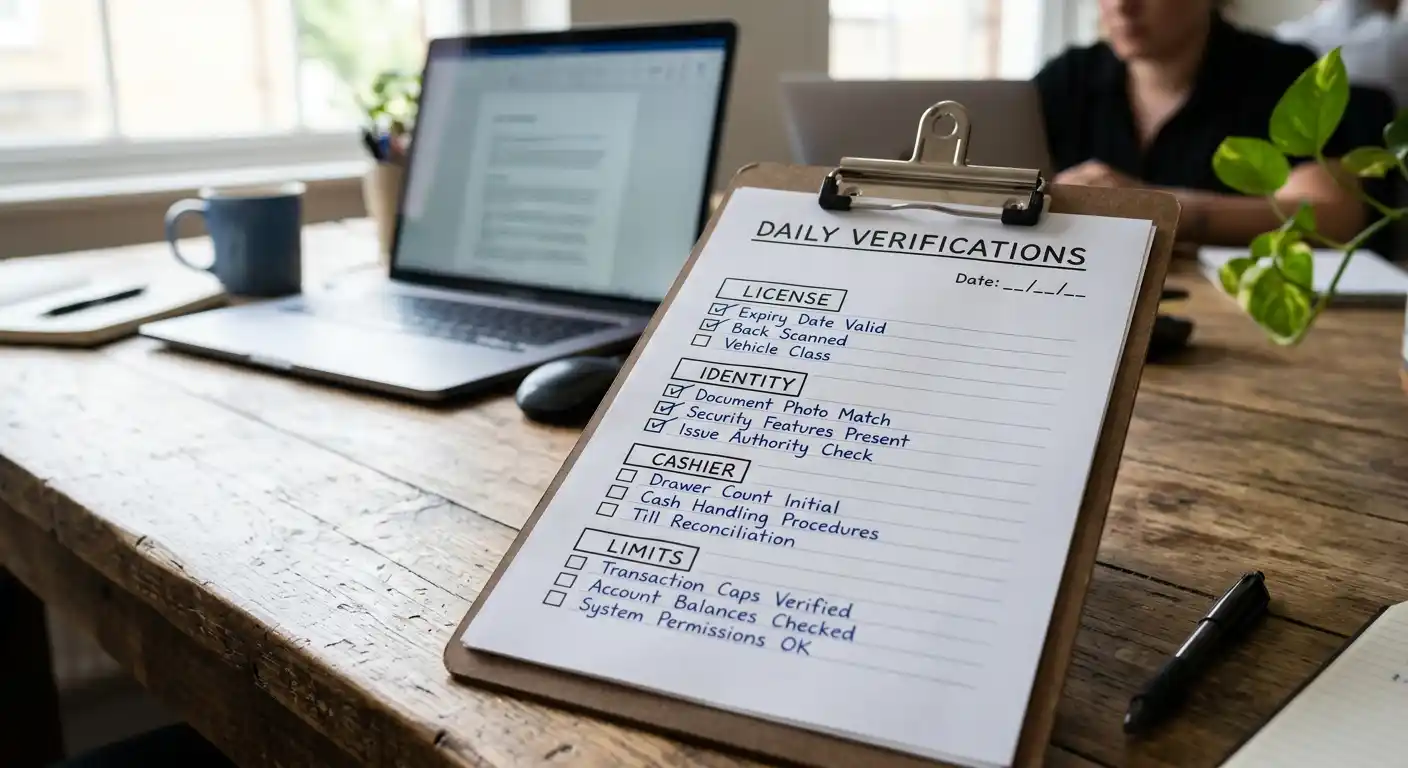 DAILY VERIFICATIONS
Date: __/__/__
LICENSE
Expiry Date Valid
Back Scanned
Vehicle Class
IDENTITY
Document Photo Match
Security Features Present
Issue Authority Check
CASHIER
Drawer Count Initial
Cash Handling Procedures
Till Reconciliation
LIMITS
Transaction Caps Verified
Account Balances Checked
System Permissions OK